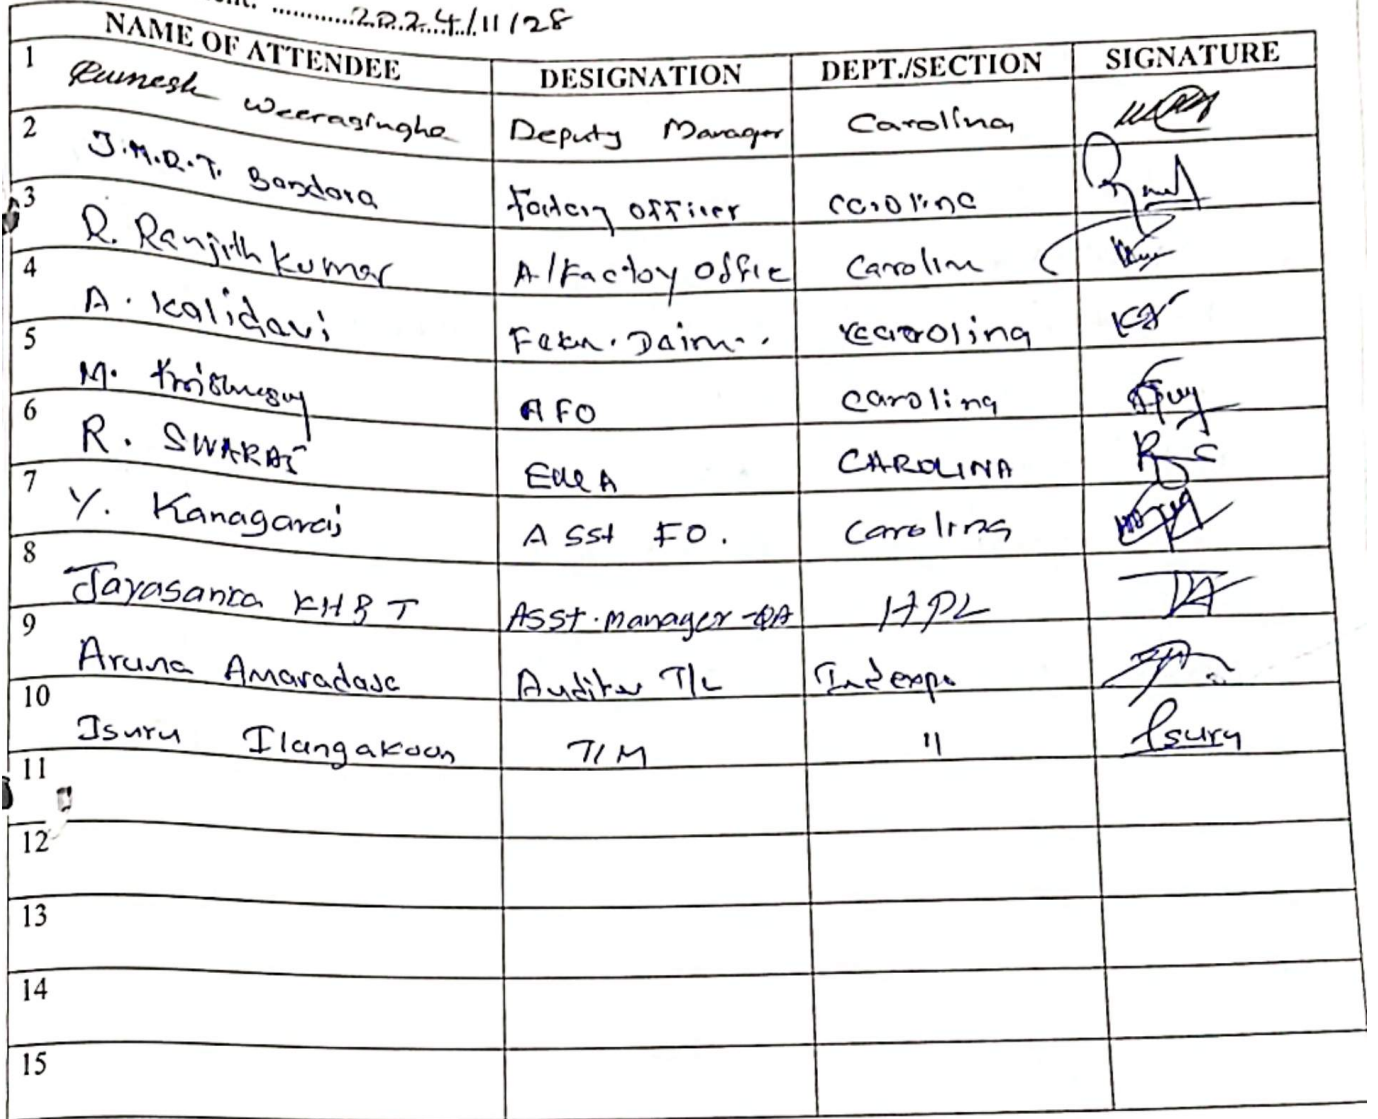 2024/11/28
NAME OF ATTENDEE DESIGNATION DEPT./SECTION SIGNATURE
1 Rumesh Weerasingha Deputy Manager Carolina
2 J.M.R.T. Bandara Factory officer Carolina
3 R. Ranjith Kumar A/Factoy Offie Carolin
4 A. Kalidavi
5 M. AFO Carolina
6 R. SWARAJ CAROLINA
7 Y. Kanagaraj Asst FO. Carolina
8 Jayasanka KHBT Asst. manager -QA HPL
9 Aruna Amaradasa Auditor T/L Indexpo
10 Isuru Ilangakoon T/M " Isuru
11
12
13
14
15